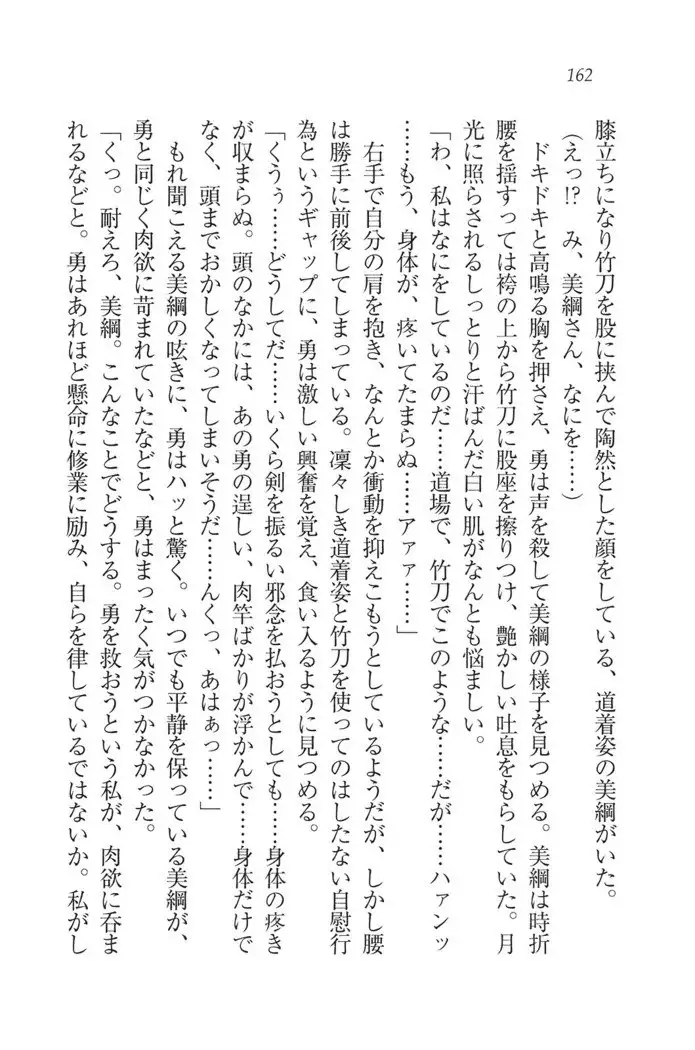 162
膝立ちになり竹刀を股に挟んで陶然とした顔をしている、道着姿の美綱がいた。
（えっ!?　み、美綱さん、なにを……）
　ドキドキと高鳴る胸を押さえ、勇は声を殺して美綱の様子を見つめる。美綱は時折
腰を揺すっては袴の上から竹刀に股座を擦りつけ、艶かしい吐息をもらしていた。月
光に照らされるしっとりと汗ばんだ白い肌がなんとも悩ましい。
「わ、私はなにをしているのだ……道場で、竹刀でこのような……だが……ハァンッ
……もう、身体が、疼いてたまらぬ……アァァ……」
　右手で自分の肩を抱き、なんとか衝動を抑えこもうとしているようだが、しかし腰
は勝手に前後してしまっている。凜々しき道着姿と竹刀を使ってのはしたない自慰行
為というギャップに、勇は激しい興奮を覚え、食い入るように見つめる。
「くうぅ……どうしてだ……いくら剣を振るい邪念を払おうとしても……身体の疼き
が収まらぬ。頭のなかには、あの勇の逞しい、肉竿ばかりが浮かんで……身体だけで
なく、頭までおかしくなってしまいそうだ……んくっ、あはぁっ……」
　もれ聞こえる美綱の呟きに、勇はハッと驚く。いつでも平静を保っている美綱が、
勇と同じく肉欲に苛まれていたなどと、勇はまったく気がつかなかった。
「くっ。耐えろ、美綱。こんなことでどうする。勇を救おうという私が、肉欲に呑ま
れるなどと。勇はあれほど懸命に修業に励み、自らを律しているではないか。私がし